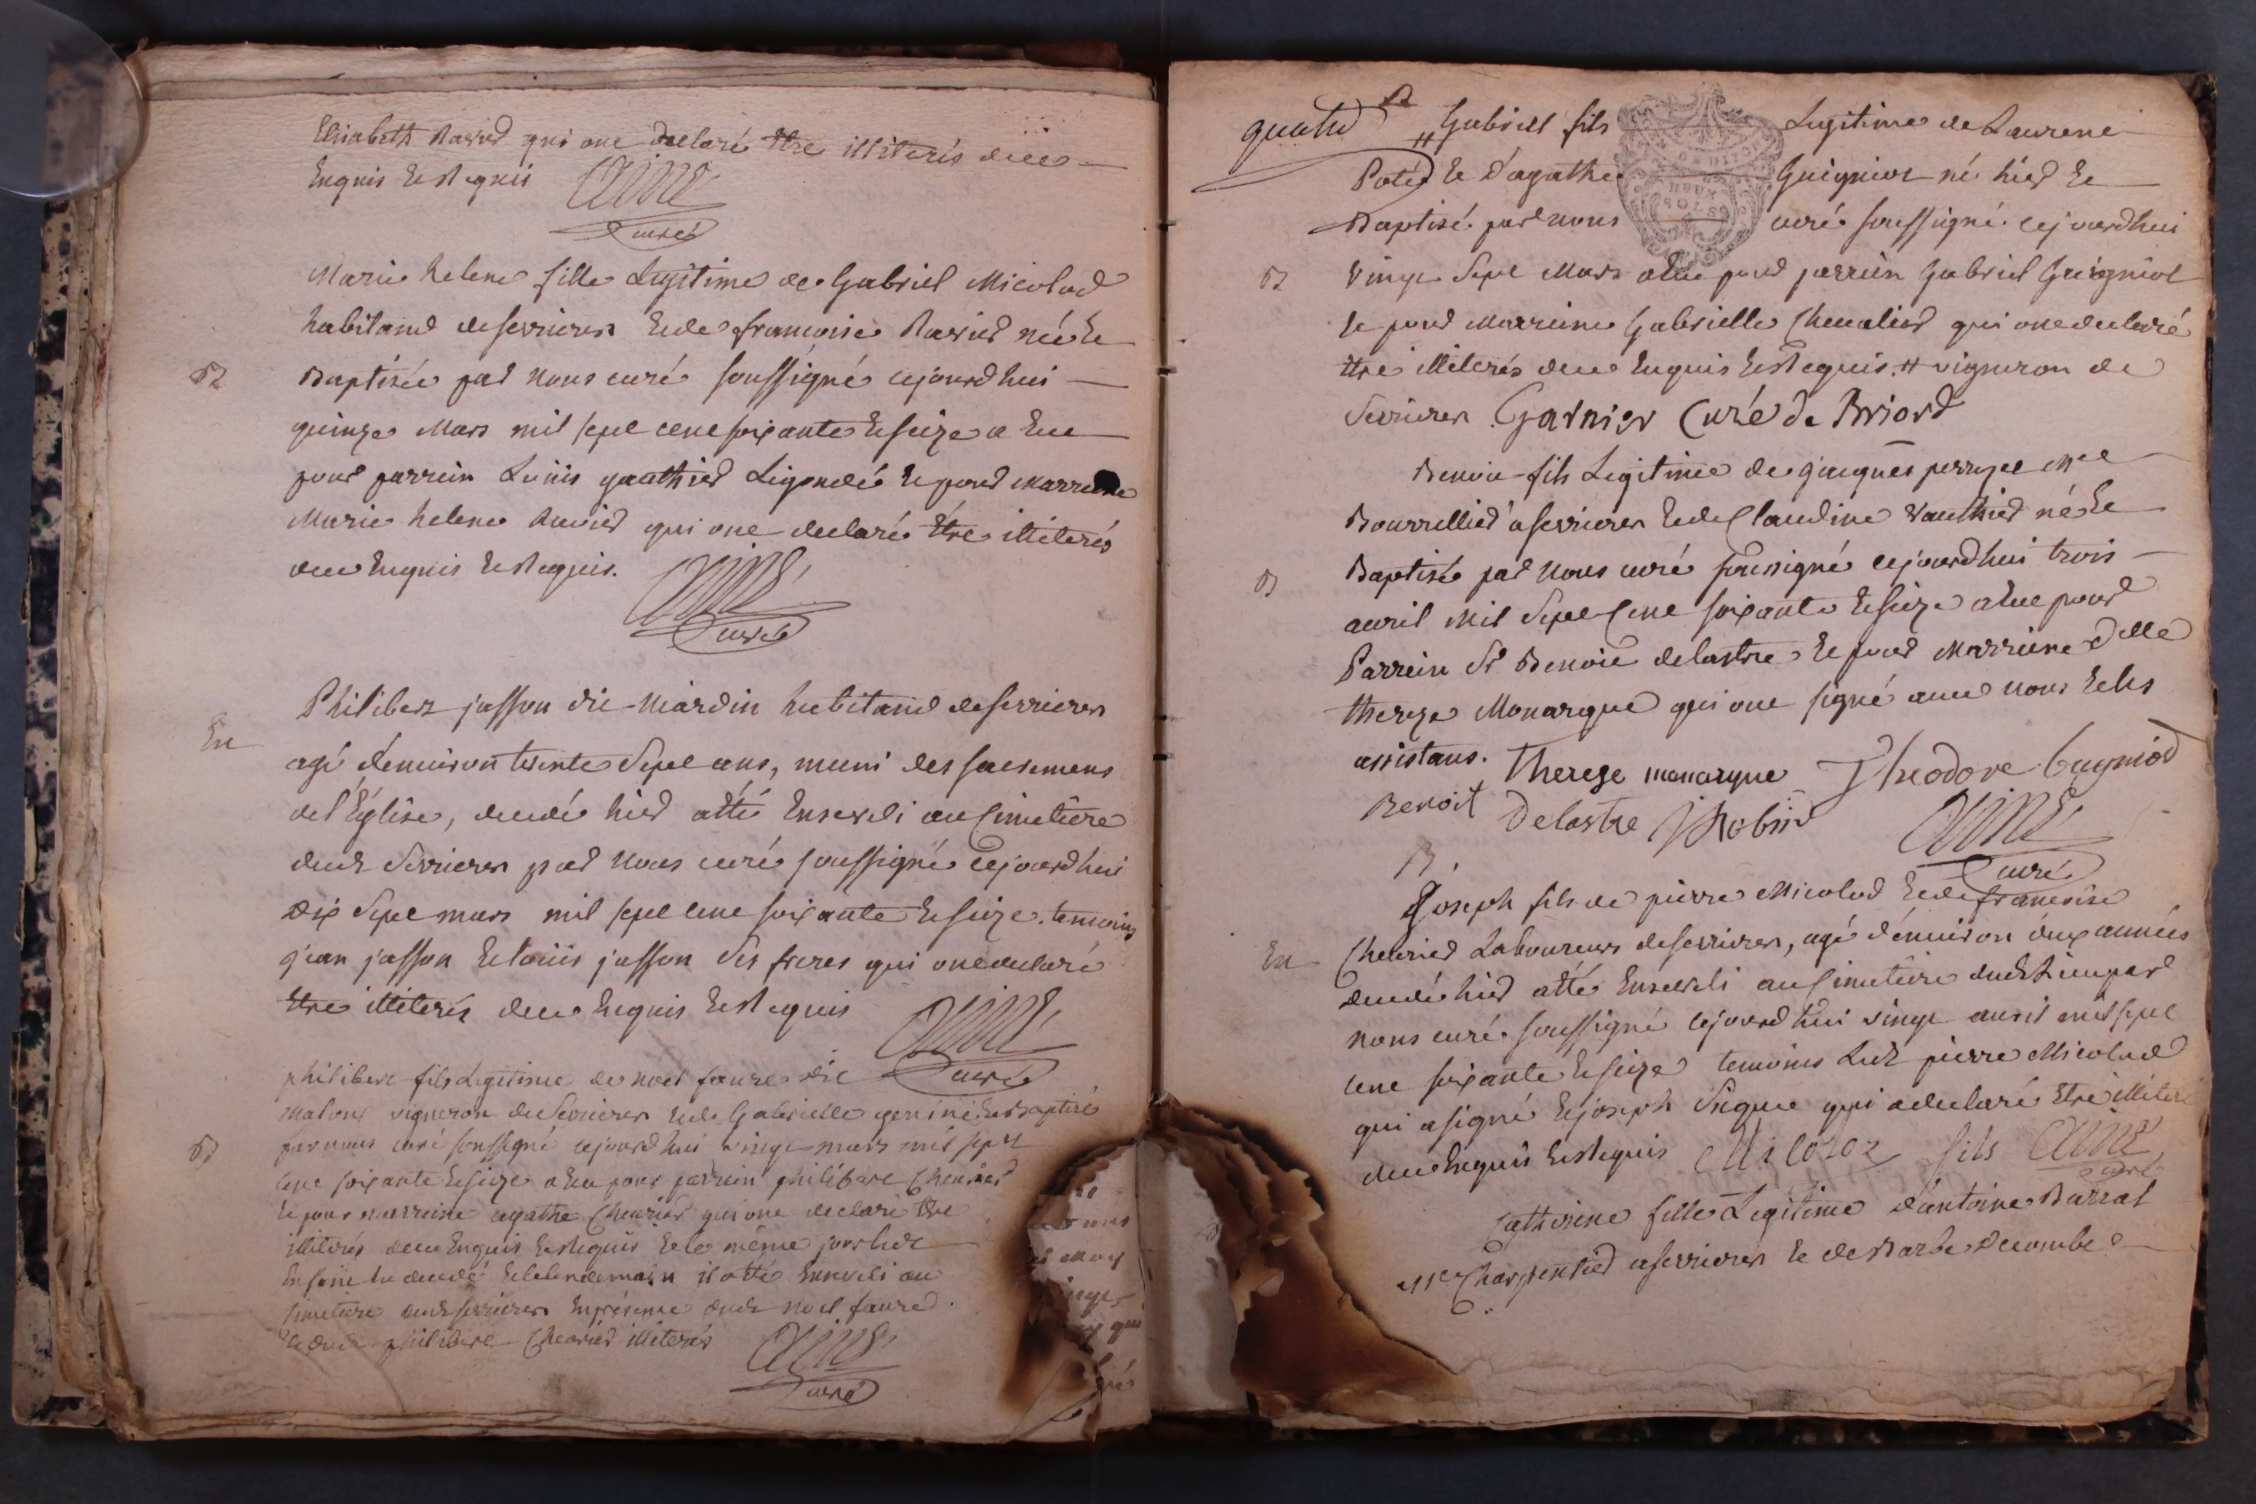 Elisabeth Ravier qui ont declaré être illiterés de ce
Enquis Et Requis
Curé
Marie helene fille Legitime de Gabriel Micolod
habitand de serrieres Et de francoise Ravier née Et
B
Baptisée par nous curé soussigné cejourdhui
quinze Mars mil sept cent soixante Et seize a Eu
pour parrein Louis gauthier Et pour Marreine
Marie helene qui ont declaré Être illiterés
de ce Enquis Et Requis.
Curé
Philibert jasson dit Mardin habitand de serrieres
En
agé d'enuiron trente Sept ans, muni des sacremens
de l'Église, decedé hier a été Enseveli au Cimetiere
dud. Serrieres par nous curé soussigné cejourdhui
dix Sept mars mil sept cent soixante Et seize. temoins
jean jasson Et louis jasson ses freres qui ont declaré
Etre illiterés de ce Enquis Et Requis
Curé
philibert fils Legitime de noel faure dit
vigneron de Serrieres Et de Gabrielle né Et Baptisé
B
par nous curé soussigné cejourdhui vingt mars mil sept
cent soixante Et seize a Eu pour parrein philibert Cheurier
Et pour marreine agathe Cheurier qui ont declaré Etre
illiterés de ce Enquis Et Requis Et le même jour
Enfant decedé Et le lendemain il a été Enseveli au
Cimetiere dud. serrieres En présence dud. noel faure
Et dud. philibert Cheurier illiterés
Curé
quatre
B
# Gabriel fils Legitime de Laurent
Poté Et d'agathe Guigniot né hier Et
Baptisé par nous curé soussigné cejourdhui
B
vingt Sept Mars a Eu pour parrein Gabriel Guigniot
Et pour Marreine Gabrielle Cheualier qui ont declaré
Etre illiterés de ce Enquis Et Requis. # vigneron de
Serrieres Garnier Curé de Briord
Benoit fils Legitime de jacques perruzet Me
Bourrellier a serrieres Et de Claudine vauthier né Et
B
Baptisé par nous curé soussigné cejourdhui trois
auril mil Sept Cent soixante Et seize a Eu pour
Parrein Sr Benoit delastre Et pour Marreine Delle
thereze Monarque qui ont signé avec nous Et les
assistans. Thereze monarque Theodore Cugniod
Benoit Delastre J Robin
Curé
Joseph fils de pierre Micolod Et de francoise
En
Laboureurs de serrieres, agé d'enuiron deux années
decedé hier a été Enseveli au Cimetiere dud. Lieu par
nous curé soussigné cejourdhui vingt auril mil sept
cent soixante Et seize temoins Led. pierre Micolod
qui a signé Et joseph qui a declaré Etre illiteré
de ce Enquis Et Requis Micoloz fils
Curé
Catherine fille Legitime d'antoine Barral
Me Charpentier a serrieres Et de Barbe Decombe